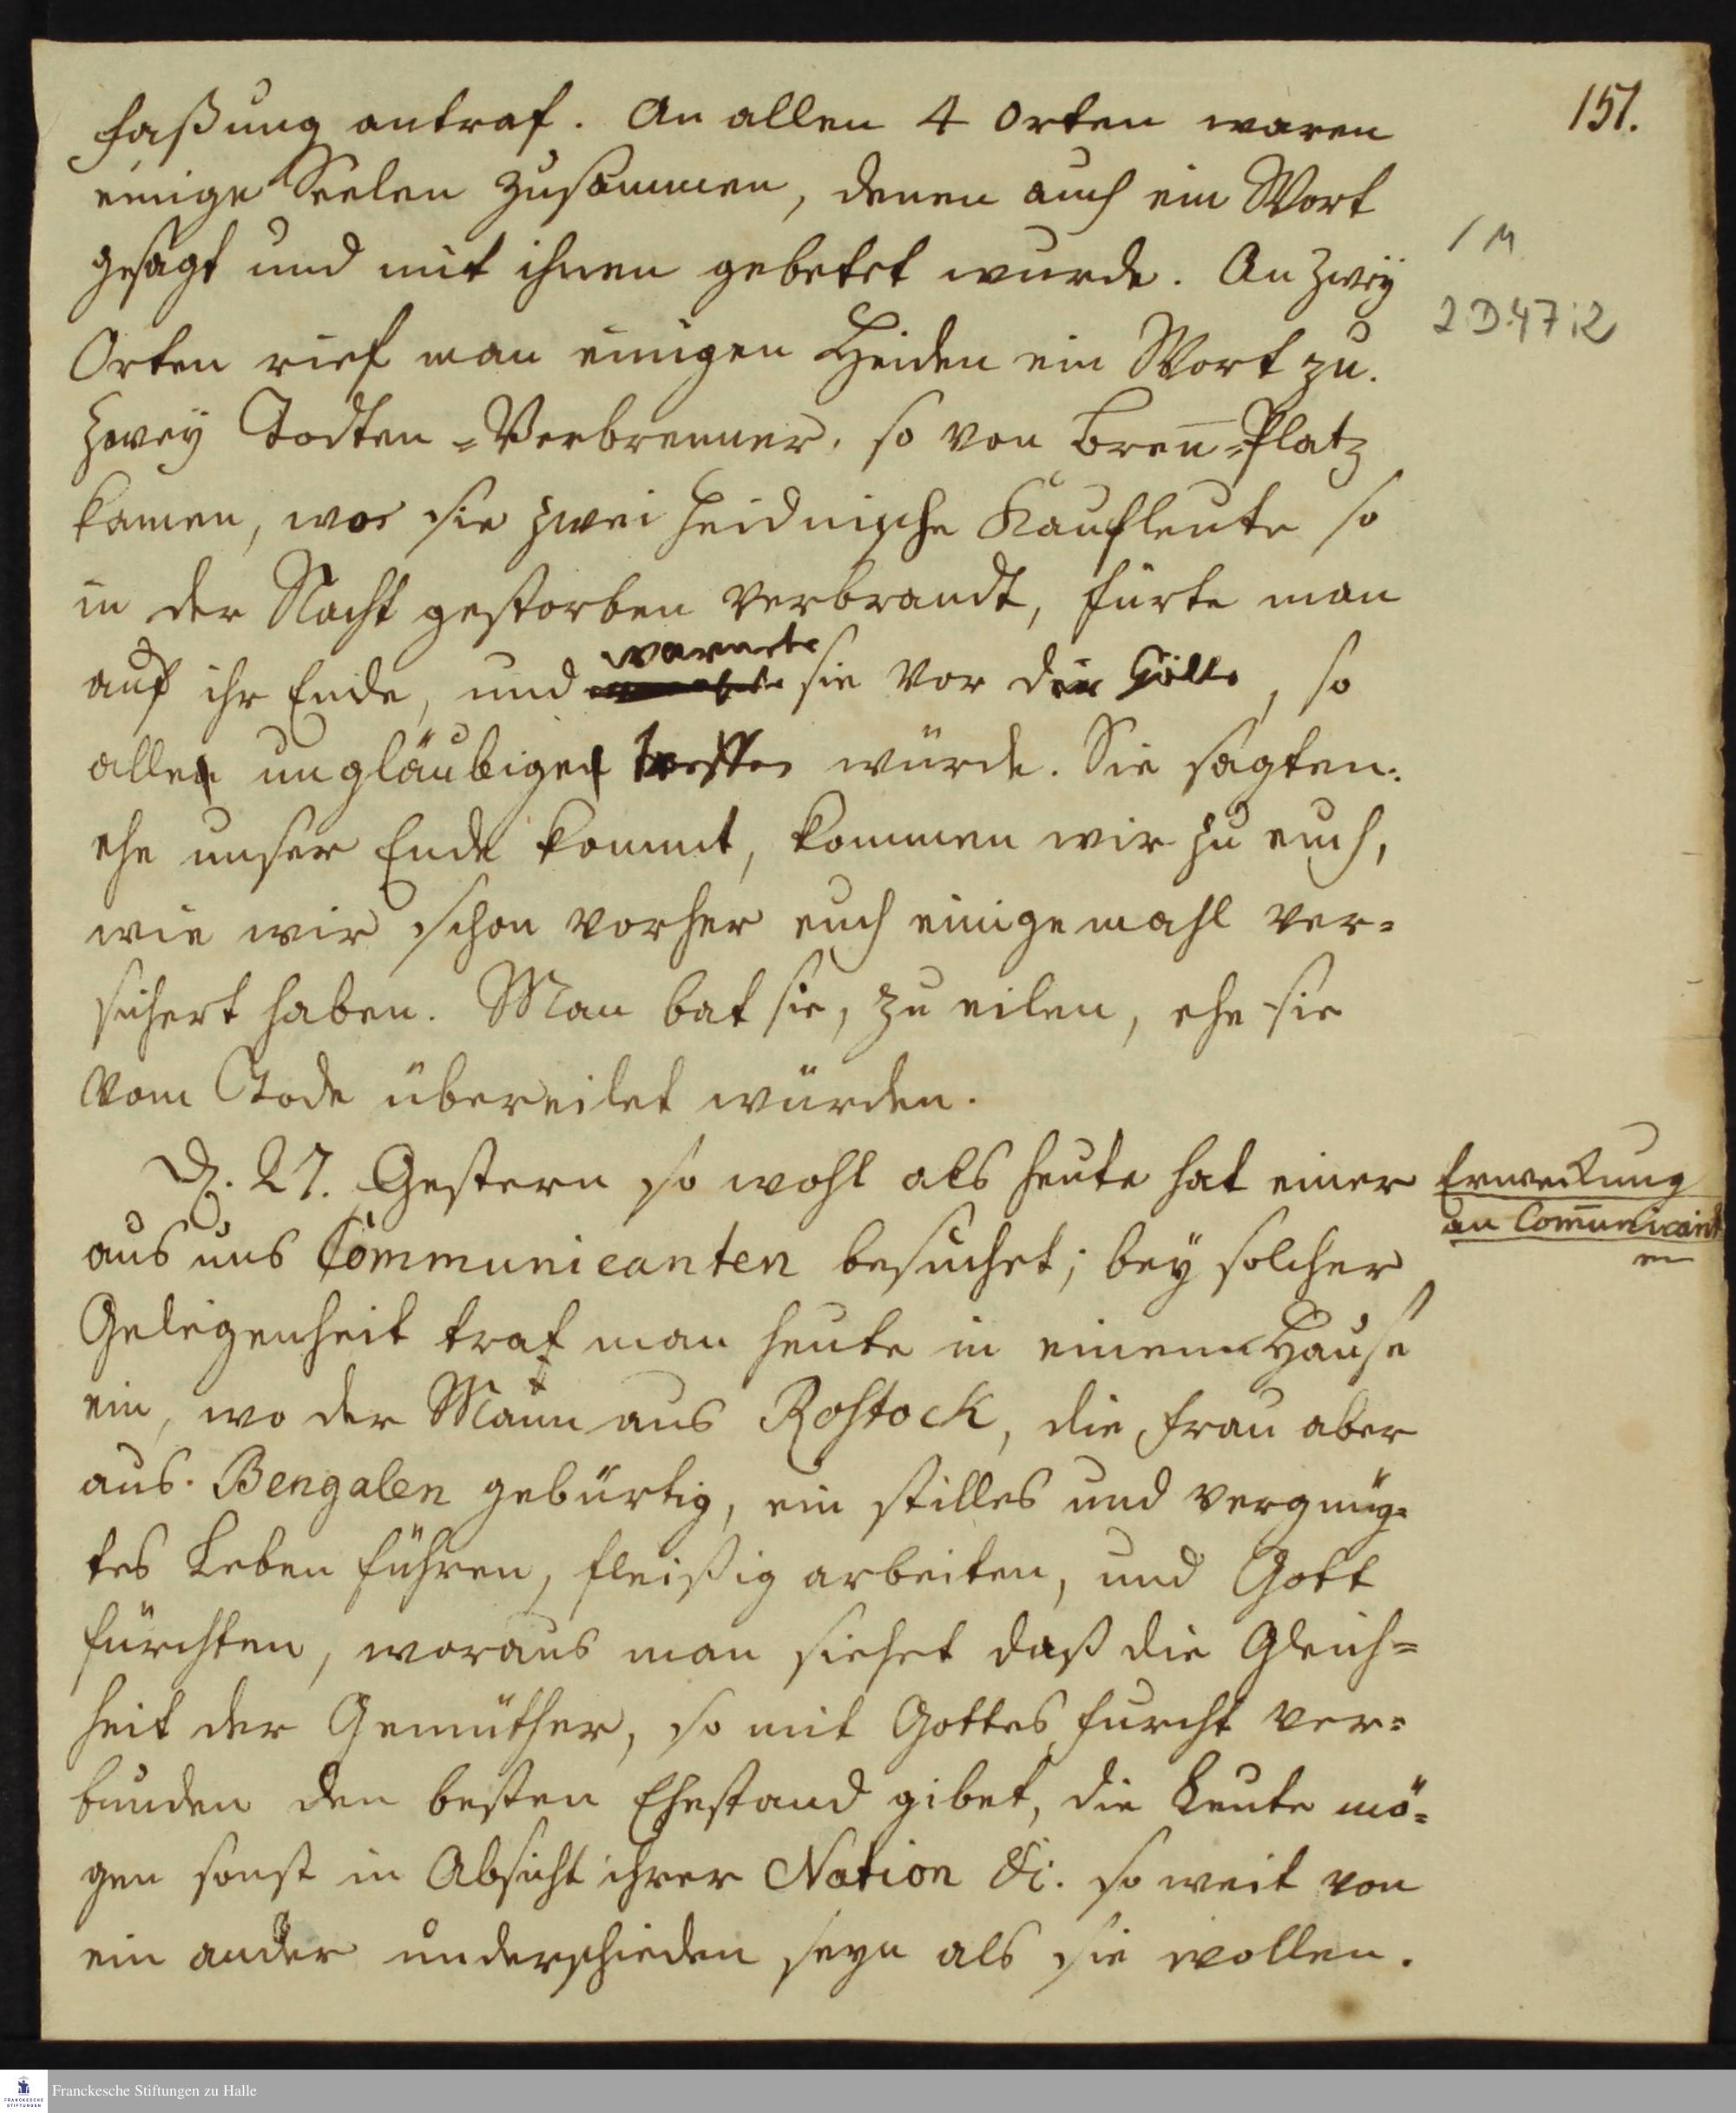 151.
faßung antraf. An allen 4 Orten waren
einige Seelen zusammen, denen auch ein Wort
gesagt und mit ihnen gebetet wurde. An zweÿ
1 M
2 D 47:2
Orten rief man einigen Heiden ein Wort zu.
Zweÿ Todten-Verbrenner, so von Breñ-Platz
kamen, wo sie zwei heidnische Kaufleute so
in der Nacht gestorben verbrandt, fürte man
auf ihr Ende, und warnete sie vor der Hölle, so
alle ungläubige treffen würde. Sie sagten:
ehe unser Ende kommt, kommen wir zu euch,
wie wir schon vorher euch einigemahl ver-
sichert haben. Man bat sie, zu eilen, ehe sie
vom Tode übereilet würden.
D. 27. Gestern so wohl als heute hat einer
Erweckung
an Com̄unicant
en
aus uns Communicanten besuchet; beÿ solcher
Gelegenheit traf man heute in einem Hause
ein, wo der Mann aus Rostock, die Frau aber
aus Bengalen gebürtig, ein stilles und vergnüg-
tes Leben führen, fleißig arbeiten, und Gott
fürchten, woraus man siehet daß die Gleich-
heit der Gemüther, so mit Gottes furcht ver-
bunden den besten Ehestand gibet, die Leute mö-
gen sonst in Absicht ihrer Nation &c. so weit von
ein ander underschieden seyn als sie wollen.
Franckesche Stiftungen zu Halle
FRANCKESCHE
STIFTUNGEN